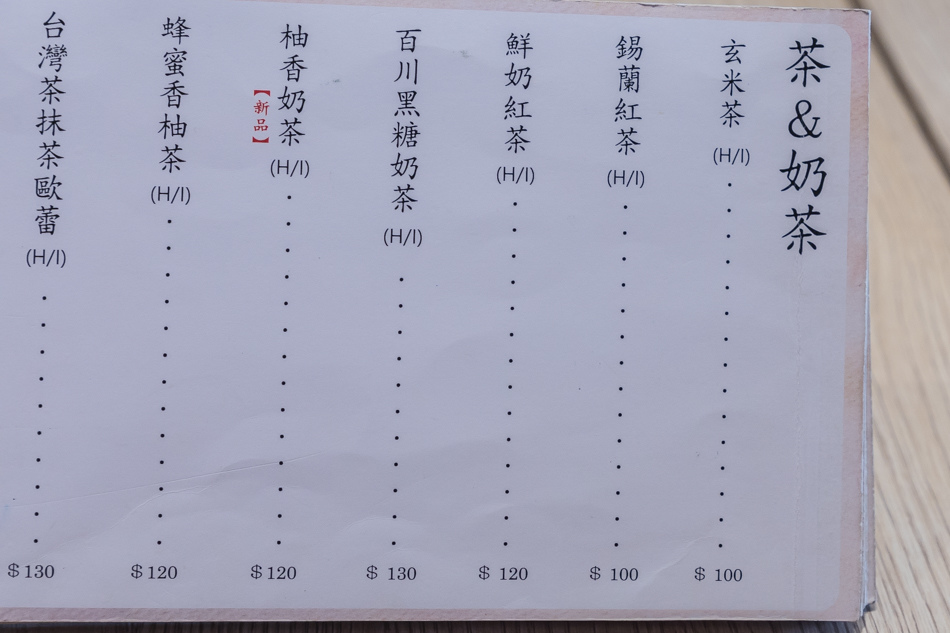 茶&奶茶
玄米茶(H/I)........$100
錫蘭紅茶(H/I)........$100
鮮奶紅茶(H/I)........$120
百川黑糖奶茶(H/I)........$130
柚香奶茶(H/I)........$120
【新品】
蜂蜜香柚茶(H/I)........$120
台灣茶抹茶歐蕾(H/I)........$130